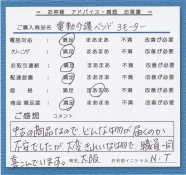 お客様 アドバイス・感想 お葉書
ご購入商品名 電動介護ベッド 3モーター
電話対応 満足 まあまあ 不満 改善が必要
クリーニング 満足 まあまあ 不満 改善が必要
お取引連絡 満足 まあまあ 不満 改善が必要
配達設置 満足 まあまあ 不満 改善が必要
価格 満足 まあまあ 不満 改善が必要
商品満足度 満足 まあまあ 不満 改善が必要
ご感想 コメント
中古の商品なので どんな物が届くのか
不安でしたが 大変きれいな物で、職員一同
喜こんでいます。 大阪 お客様イニシャル N.T